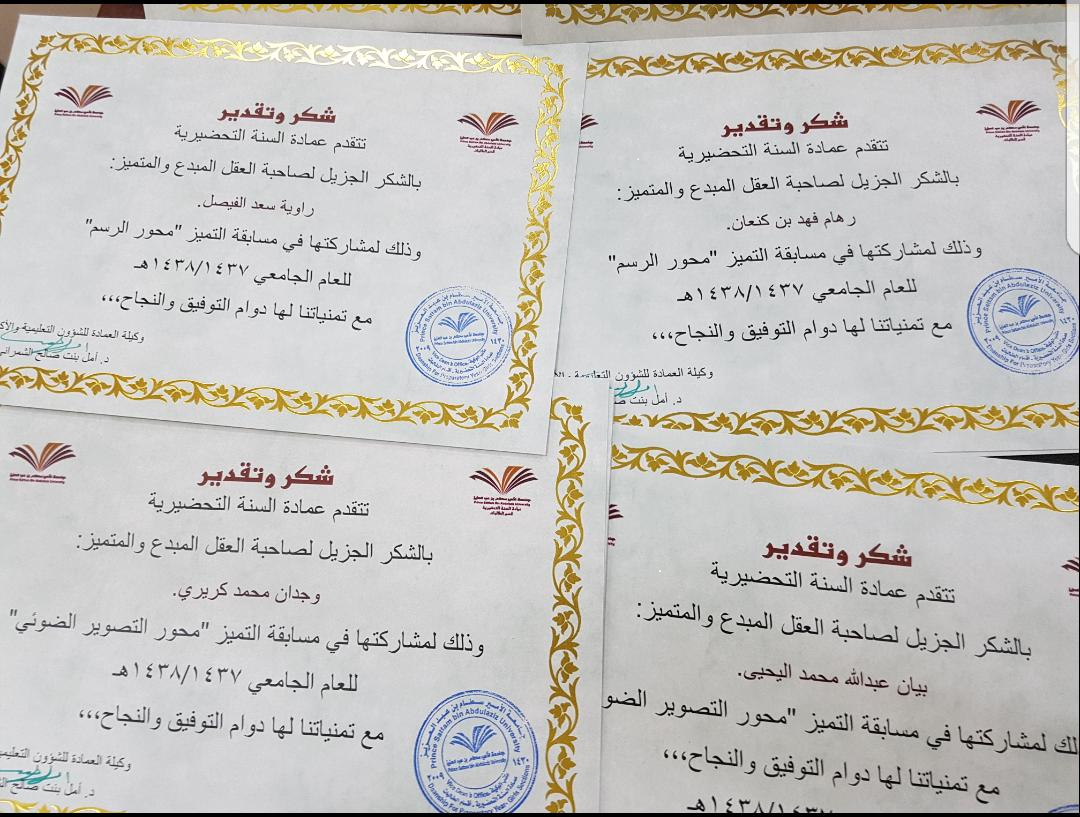 شكر وتقدير
تتقدم عمادة السنة التحضيرية
بالشكر الجزيل لصاحبة العقل المبدع والمتميز:
رهام فهد بن كنعان.
وذلك لمشاركتها في مسابقة التميز "محور الرسم"
للعام الجامعي ١٤٣٨/١٤٣٧هـ
مع تمنياتنا لها دوام التوفيق والنجاح،،،
وكيلة العمادة للشؤون التعليمية
د. أمل بنت
Prince Sattam bin Abdulaziz University
شكر وتقدير
تتقدم عمادة السنة التحضيرية
بالشكر الجزيل لصاحبة العقل المبدع والمتميز:
راوية سعد الفيصل.
وذلك لمشاركتها في مسابقة التميز "محور الرسم"
للعام الجامعي ١٤٣٨/١٤٣٧هـ
مع تمنياتنا لها دوام التوفيق والنجاح،،،
وكيلة العمادة للشؤون التعليمية
د. أمل بنت صالح الشمراني
جامعة الأمير سطام بن عبد العزيز
Prince Sattam bin Abdulaziz University
٢٠٠٩ ١٤٣٠
شكر وتقدير
تتقدم عمادة السنة التحضيرية
بالشكر الجزيل لصاحبة العقل المبدع والمتميز:
بيان عبدالله محمد اليحيى.
لمشاركتها في مسابقة التميز "محور التصوير الضو
مع تمنياتنا لها دوام التوفيق والنجاح،،،
١٤٣٨/١٤٣٧هـ
شكر وتقدير
تتقدم عمادة السنة التحضيرية
بالشكر الجزيل لصاحبة العقل المبدع والمتميز:
وجدان محمد كريري.
وذلك لمشاركتها في مسابقة التميز "محور التصوير الضوئي"
للعام الجامعي ١٤٣٨/١٤٣٧هـ
مع تمنياتنا لها دوام التوفيق والنجاح،،،
وكيلة العمادة للشؤون التعليمي
د. أمل بنت صالح
جامعة الأمير سطام بن عبد العزيز
Prince Sattam bin Abdulaziz University
٢٠٠٩ ١٤٣٠